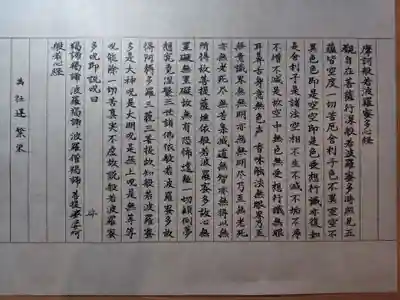 摩訶般若波羅蜜多心経
観自在菩薩行深般若波羅蜜多時照見五
蘊皆空度一切苦厄舎利子色不異空空不
異色色即是空空即是色受想行識亦復如
是舎利子是諸法空相不生不滅不垢不浄
不増不減是故空中無色無受想行識無眼
耳鼻舌身意無色声香味触法無眼界乃至
無意識界無無明亦無無明尽乃至無老死
亦無老死尽無苦集滅道無智亦無得以無
所得故菩提薩埵依般若波羅蜜多故心無
罣礙無罣礙故無有恐怖遠離一切顛倒夢
想究竟涅槃三世諸佛依般若波羅蜜多故
得阿耨多羅三藐三菩提故知般若波羅蜜
多是大神呪是大明呪是無上呪是無等等
呪能除一切苦真実不虚故説般若波羅蜜
多呪即説呪曰
羯諦羯諦波羅羯諦波羅僧羯諦菩提娑婆訶
般若心経
為 社運繁栄